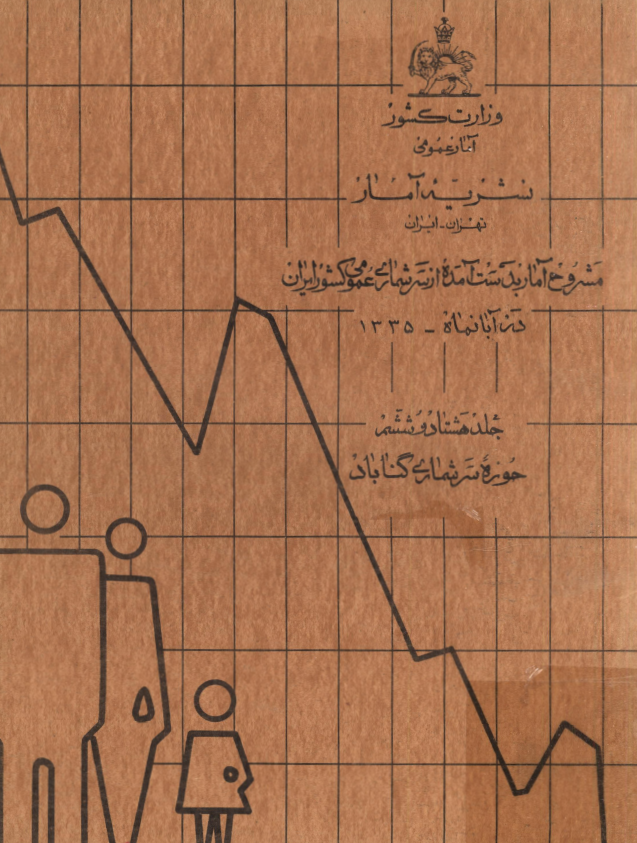 وزارت کشور
آمار عمومی
نشریهٔ آمار
تهران - ایران
مشروح آمار بدست آمده از سرشماری عمومی کشور ایران
در آبانماه - ۱۳۳۵
جلد هشتاد و ششم
حوزهٔ سرشماری گناباد